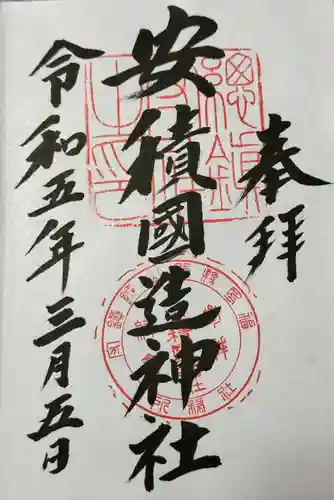 奉拝
安積國造神社
令和五年三月五日